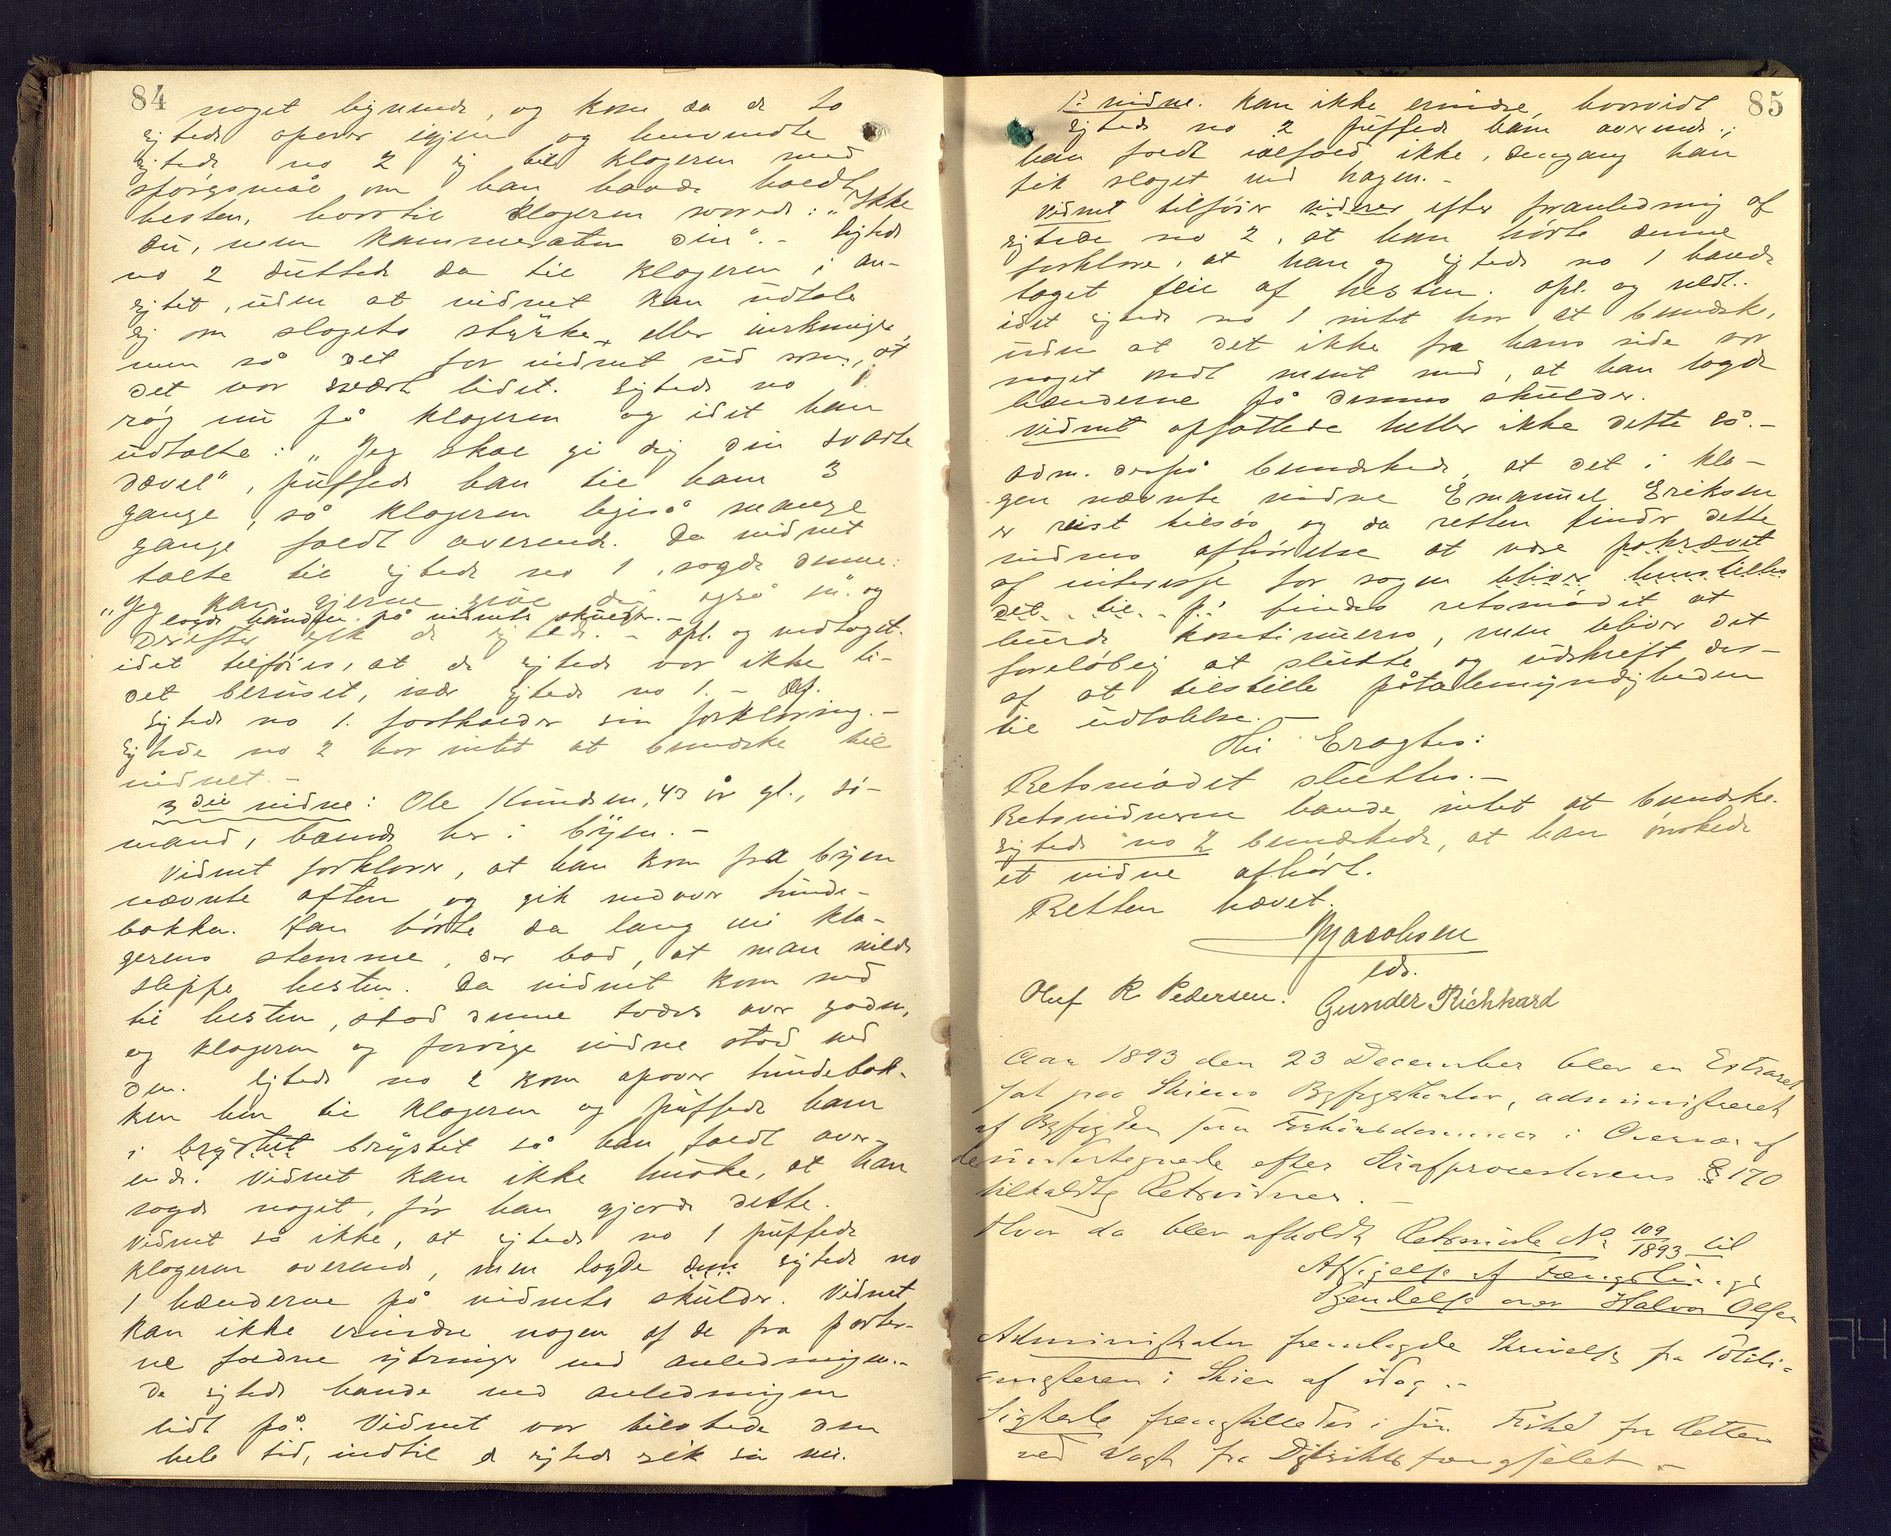 84
noget lignende, og kom da de to
sigtede opover igjen og henvendte
sigtede no 2 sig til klageren med
spørgsmål om han havde holdt
hesten, hvortil klageren svarede: „Ikke
du, men kammeraten din“. – Sigtede
no 2 duttede da til klageren i an-
sigtet, uden at vidnet kan udtale
sig om slagets styrke eller virkninger,
men så det for vidnet ud som, at
det var svært lidet. Sigtede no 1
røg nu på klageren og idet han
udtalte: „Jeg skal gi dig din svarte
dævel“, puffede han til ham 3
gange, så klageren ligeså mange
gange faldt overende. Da vidnet
talte til sigtede no 1, sagde denne:
„Jeg kan gjerne give dig også en“ og
lagde hånden på vidnets skulder. –
Derefter gik de sigtede. – Opl. og vedtaget.
idet tilføies, at de sigtede var ikke li-
det beruset, især sigtede no 1. –
Sigtede no 1. fastholder sin forklaring. –
Sigtede no 2 har intet at bemærke til
vidnet. –
3die vidne: Ole Knudsen, 43 år gl., sø-
mand, boende her i byen. –
Vidnet forklarer, at han kom fra byen
nævnte aften og gik nedover Hunde-
bakken. Han hørte da lang vei kla-
gerens stemme, der bad, at man vilde
slippe hesten. Da vidnet kom ned
til hesten, stod denne tvers over gaden,
og klageren og forrige vidne stod ved
den. Sigtede no 2 kom opover Hundebak-
ken hen til klageren og puffede ham
i brystet brystet så han faldt over-
ende. Vidnet kan ikke huske, at han
sagde noget, før han gjorde dette.
Vidnet så ikke, at sigtede no 1 puffede
klageren overende, men lagde den sigtede no
1 hænderne på vidnets skulder. Vidnet
kan ikke erindre nogen af de fra parter-
ne faldne ytringer ved anledningen. –
De sigtede havde ved anledningen
lidt på. Vidnet var tilstede den
hele tid, indtil de sigtede gik sin vei.
85
1ste vidne. kan ikke erindre, hvorvidt
sigtede no 2 puffede ham overende;
han faldt ialfald ikke, dengang han
fik slaget ved hagen. –
Vidnet tilføier videre efter foranledning af
sigtede no 2, at han hørte denne
forklare, at han og sigtede no 1 havde
taget feil af hesten. Opl. og vedt..
idet sigtede no 1 intet har at bemærke,
uden at det ikke fra hans side var
noget ondt ment med, at han lagde
hænderne på dennes skulder.
Vidnet opfattede heller ikke dette så. –
Adm. derpå bemærkede, at det i kla-
gen nævnte vidne Emanuel Eriksen
er reist tilsøs og da retten finder dette
vidnes afhørelse at være påkrævet
af interesse for sagen bliver henstilles
det til findes retsmødet at
burde kontinueres, men bliver det
foreløbig at slutte og udskrift der-
af at tilstille påtalemyndigheden
til udtalelse. –
Thi Eragtes:
Retsmødet sluttes. –
Retsvidnerne havde intet at bemærke.
Sigtede no 2 bemærkede, at han ønskede
et vidne afhørt.
Retten hævet.
Jacobsen
cds.
Oluf R. Pedersen. Gunder Richhard
Aar 1893 den 23 December blev en Extraret
sat paa Skiens Byfogdkontor, administreret
af Byfogden som Forhørsdommer i Overvær af
de undertegnede efter Strafproceslovens § 170
tilkaldte Retsvidner. –
Hvor da blev afholdt Retsmøde No 109/1893 til
Afsigelse af Fængslings
Kjendelse over Halvor Olsen
Administrator fremlagde Skrivelse fra Politi-
mesteren i Skien af idag. –
Sigtede fremstilledes i fri Tilstand for Retten
ved Vagt fra Distriktsfængslet. –